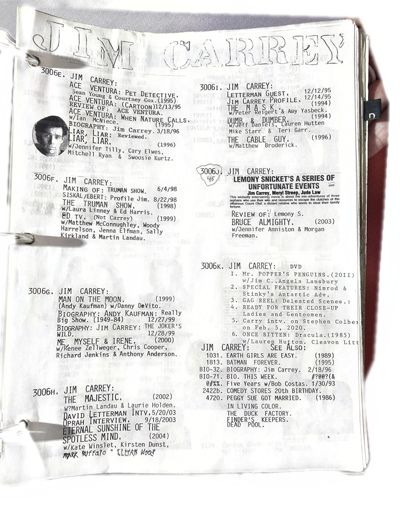 JIM CARREY
3006E. JIM CARREY:
ACE VENTURA: PET DETECTIVE.
Sean Young & Courtney Cox. (1995)
REVIEW OF: (CARTOON) 12/13/95
ACE VENTURA: ACE VENTURA.
ACE VENTURA: WHEN NATURE CALLS.
w/Ian McNiece. (1995)
BIOGRAPHY: Jim Carrey. 3/18/96
LIAR, LIAR: Reviewed.
LIAR, LIAR. (1996)
w/Jennifer Tilly, Cary Elwes,
Mitchell Ryan & Swoosie Kurtz.
3006F. JIM CARREY:
MAKING OF: TRUMAN SHOW. 6/4/98
SISKAL/EBERT: Profile Jim. 8/22/98
THE TRUMAN SHOW. (1998)
w/Laura Linney & Ed Harris.
ED TV. (Not Carrey) (1999)
w/Matthew McConnughley, Woody
Harrelson, Jenna Elfman, Sally
Kirkland & Martin Landau.
3006G. JIM CARREY:
MAN ON THE MOON. (1999)
(Andy Kaufman) w/Danny DeVito.
BIOGRAPHY: ANDY KAUFMAN: Really
Big Show. (1949-84) 12/27/99
BIOGRAPHY: JIM CARREY: THE JOKER'S
WILD. 12/28/99
ME, MYSELF & IRENE. (2000)
w/Renee Zellweger, Chris Cooper,
Richard Jenkins & Anthony Anderson.
3006H. JIM CARREY:
THE MAJESTIC. (2002)
w/Martin Landau & Laurie Holden.
DAVID LETTERMAN INTV. 5/20/03
OPRAH INTERVIEW. 9/18/2003
ETERNAL SUNSHINE OF THE
SPOTLESS MIND. (2004)
w/Kate Winslet, Kirsten Dunst,
MARK RUFFALO & ELIJAH WOOD
3006I. JIM CARREY:
LETTERMAN GUEST. 12/12/95
JIM CARREY PROFILE. 12/14/95
THE MASK. (1994)
w/Peter Reigert & Amy Yasbeck.
DUMB & DUMBER. (1994)
w/Jeff Daniels, Lauren Hutten
Mike Starr & Teri Garr.
THE CABLE GUY. (1996)
w/Matthew Broderick.
3006J. JIM CARREY:
LEMONY SNICKET'S A SERIES OF
UNFORTUNATE EVENTS
Jim Carrey, Meryl Streep, Jude Law
REVIEW OF: Lemony S.
BRUCE ALMIGHTY. (2003)
w/Jennifer Anniston & Morgan
Freeman.
3006K. JIM CARREY: DVD
1. Mr. POPPER'S PENGUINS. (2011)
w/Jim C. Angela Lansbury
2. SPECIAL FEATURES: Nimrod &
Stinky's Antarctic Adv.
3. GAG REEL: Deleated Scenes.
4. READY FOR THEIR CLOSE-UP
Ladies and Gentoomen.
5. Carry intv. on Stephen Colber
on Feb. 5, 2020.
6. ONCE BITTEN: Dracula. (1985)
w/Lauren Hutton, Cleavon Litt
JIM CARREY: SEE ALSO:
1031. EARTH GIRLS ARE EASY. (1989)
1813. BATMAN FOREVER. (1995)
BIO-32. BIOGRAPHY: Jim Carrey. 2/18/96
BIO-71. BIO. THIS WEEK.
Five Years w/Bob Costas. 1/30/93
2422B. COMEDY STORES 20th BIRTHDAY.
4720. PEGGY SUE GOT MARRIED. (1986)
IN LIVING COLOR.
THE DUCK FACTORY.
FINDER'S KEEPERS.
DEAD POOL.